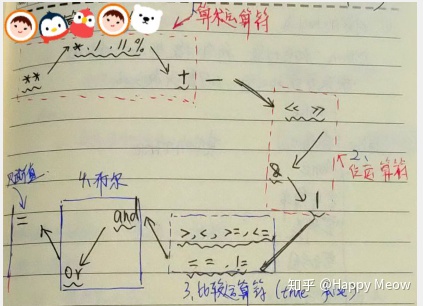 算术运算符
*, /, //, %
**
+ -
<< >>
2、
位运算符
&
|
4、布尔
=
and
>, <, >=, <=
==, !=
or
3、比较运算符 (true
知乎 @Happy Meow